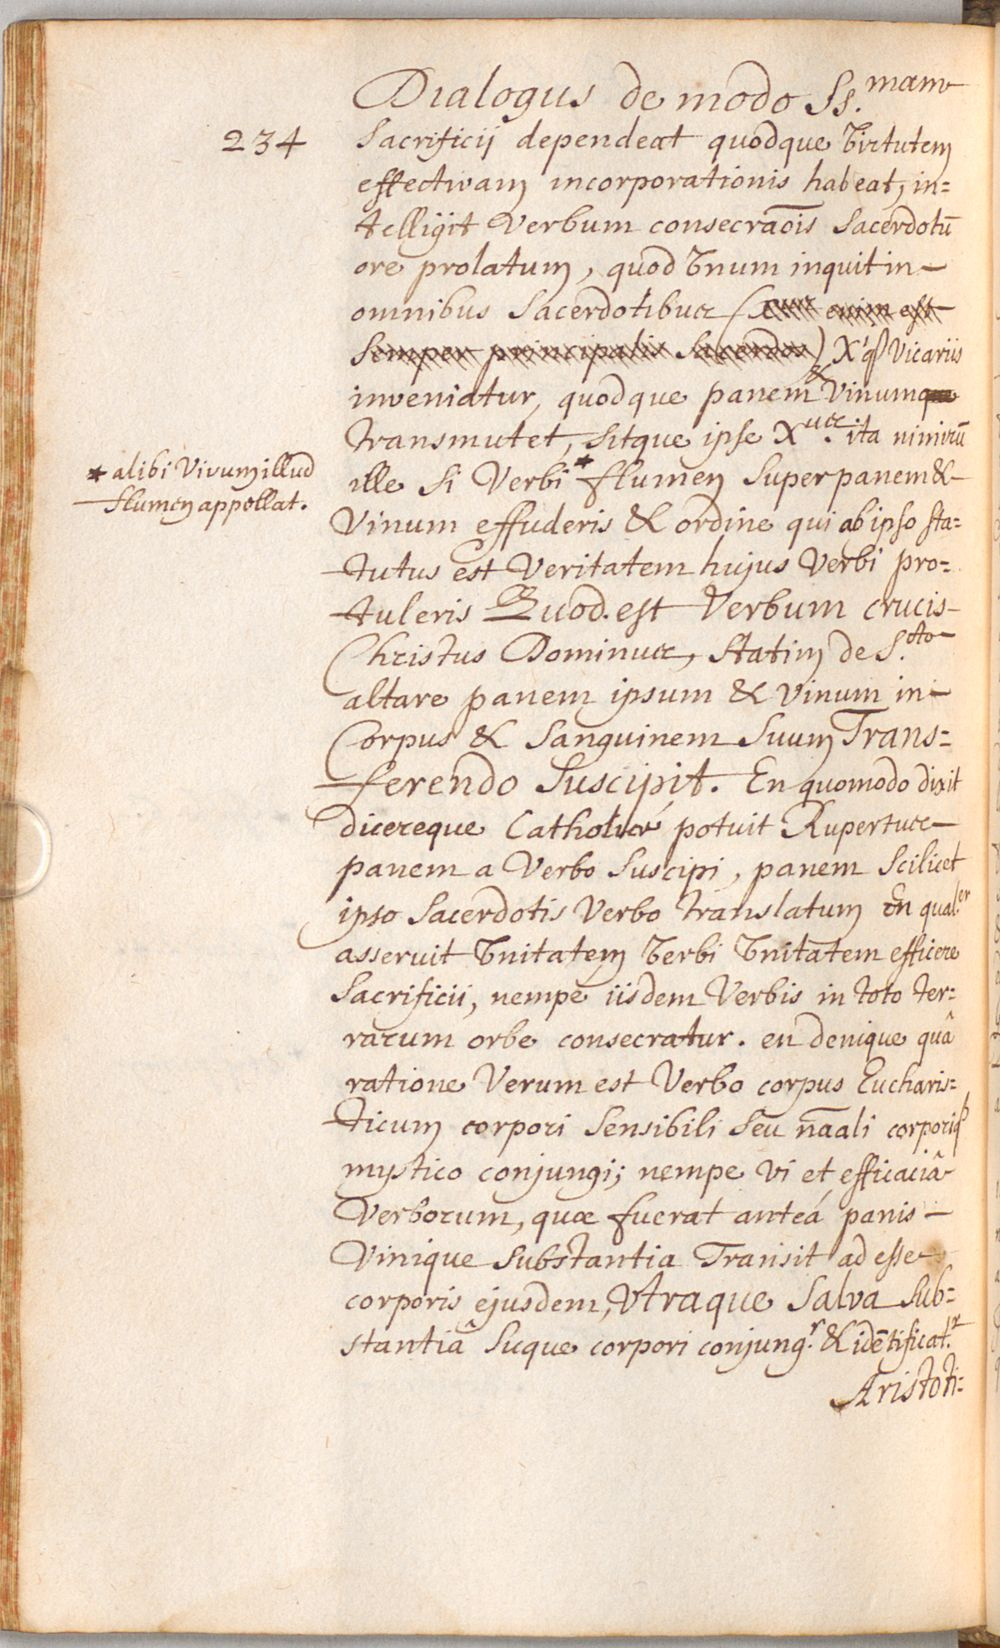 Dialogus de modo Ss.mam
234
Sacrificij dependeat quodque Virtutem
effectivam incorporationis habeat, in=
telligit Verbum consecraōis Sacerdotū
ore prolatum, quod Vnum inquit in
omnibus Sacerdotibus (Xtus enim est
Semper principalis Sacerdos) X'q3 Vicariis
inveniatur, quodque panem & Vinumque
transmutet, sitque ipse Xtus. ita nimirū
* alibi Vivum illud
flumen appellat.
ille Si Verbi * flumen Super panem &
Vinum effuderis & ordine qui ab ipso sta=
tutus est Veritatem hujus Verbi pro=
tuleris Quod est Verbum crucis
Christus Dominus, Statim de S.cto
altare panem ipsum & Vinum in
Corpus & Sanguinem Suum Trans=
ferendo Suscipit. En quomodo dixit
dicereque Catholicè potuit Rupertus
panem a Verbo Suscipi, panem Scilicet
ipso Sacerdotis Verbo translatum En qual.er
asseruit Vnitatem Verbi Vnitatem efficere
Sacrificii, nempe iisdem Verbis in toto ter=
rarum orbe consecratur. en denique quâ
ratione Verum est Verbo corpus Eucharis=
ticum corpori Sensibili Seu nāali corporiq3
mystico conjungi; nempe vi et efficaciâ
Verborum, quæ fuerat anteá panis
Vinique Substantia Transit ad esse
corporis ejusdem, Vtraque Salva Sub=
stantiâ Sicque corpori conjung.r & idētificat.r
Aristoti=